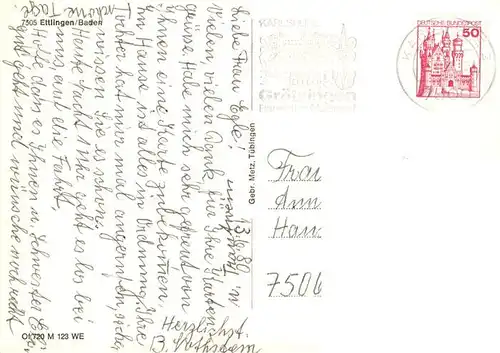 7505 Ettlingen/Baden
13.6.80
Liebe Frau Egle!
Vielen, vielen Dank für Ihre Karten
grüsse. Habe mich sehr gefreut von
Ihnen eine Karte zu bekommen.
Im Hause ist alles in Ordnung. Ihre
Tochter hat mir mal angerufen, sicher
wissen Sie es schon.
Heute Nacht 1 Uhr geht es los bei
uns auf die Fahrt.
Hoffe dass es Ihnen u. Schwester
gut geht und wünsche noch recht
schöne Tage
Herzlichst
B.
Ol 720 M 123 WE
Gebr. Metz, Tübingen
KARLSRUHE
Grötzingen
DEUTSCHE BUNDESPOST
50
Frau
Han
7506